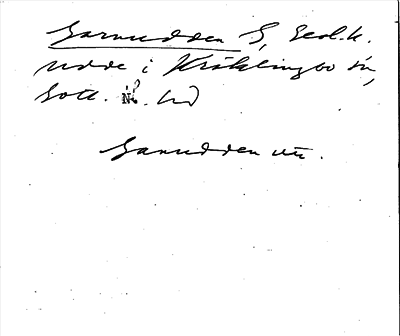 Garnudden S, Geol.k.
udde i Kräklingbo sn,
Gotl. N. hd
Garnudden utt.